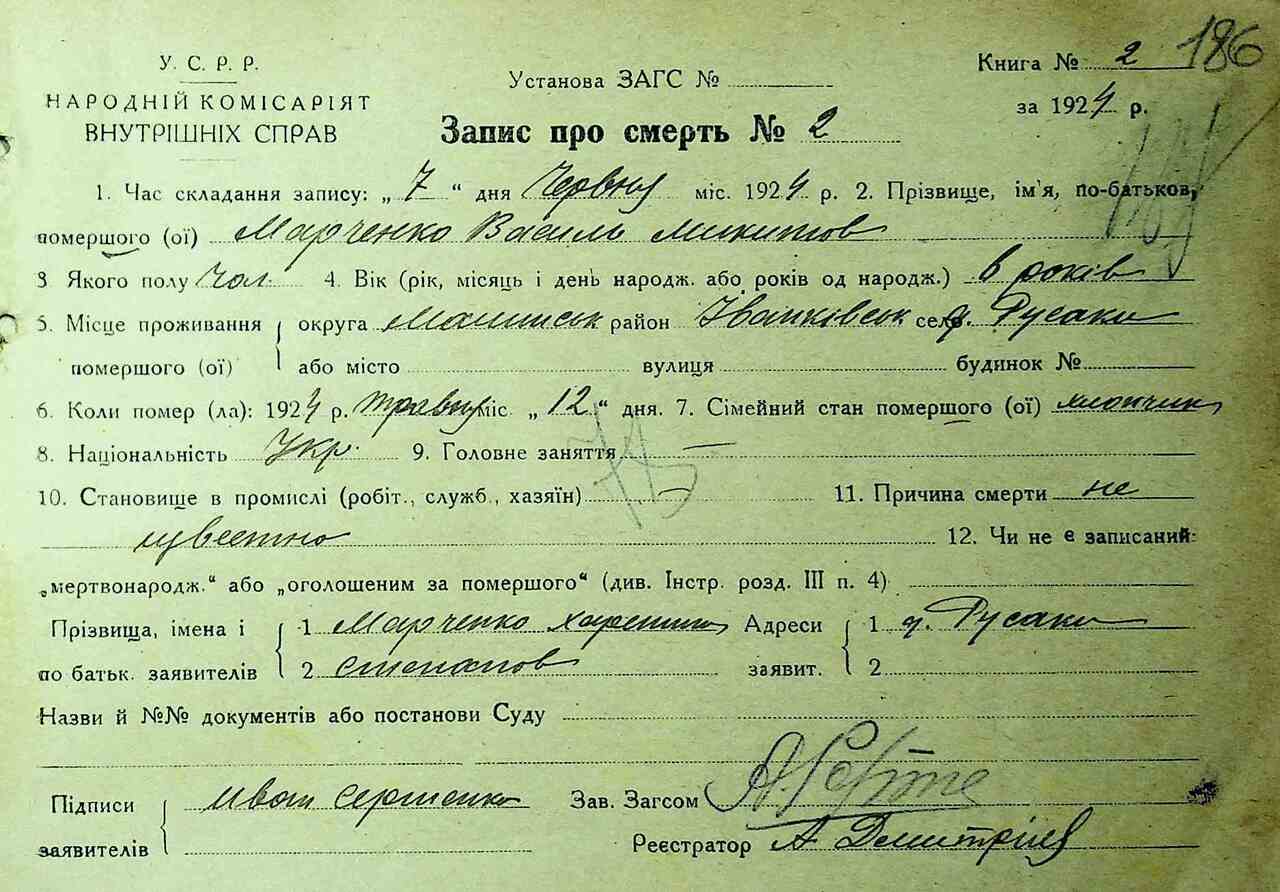 186
У. С. Р. Р.
НАРОДНІЙ КОМІСАРІЯТ
ВНУТРІШНІХ СПРАВ
Установа ЗАГС №
Книга № 2
за 1924 р.
Запис про смерть № 2
1. Час складання запису: „ 7 “ дня Червня міс. 1924 р. 2. Прізвище, ім'я, по-батьков,
помершого (ої) Марченко Василь Микитов
3 Якого полу Чол. 4. Вік (рік, місяць і день народж. або років од народж.) 6 років
5. Місце проживання округа район Іванківськ село д. Русаки
помершого (ої) або місто вулиця будинок №
6. Коли помер (ла): 1924 р. травня міс „ 12 “ дня. 7. Сімейний стан помершого (ої) хлопчик
8. Національність Укр. 9. Головне заняття —
10. Становище в промислі (робіт., служб., хазяїн) — 11. Причина смерти не
известно 12. Чи не є записаний:
„мертвонародж.“ або „оголошеним за помершого“ (див. Інстр. розд. III п. 4)
Прізвища, імена і 1 Марченко Адреси 1 д. Русаки
по батьк. заявителів 2 степанов заявит. 2
Назви й №№ документів або постанови Суду
Підписи Иван Сергиенко Зав. Загсом
заявителів Реєстратор А Дмитріев